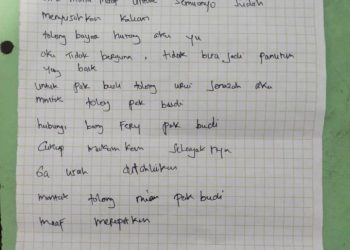 maaf untuk semuanya sudah
menyusahkan kalian
tolong bayar hutang aku yu
aku tidak berguna, tidak bisa jadi panutan
yang baik
untuk pak budi tolong urus jenazah aku
tolong pak budi
hubungi bang Fery pak budi
cukup makamkan selayak nya
Ga usah
tolong pak budi
maaf merepotkan